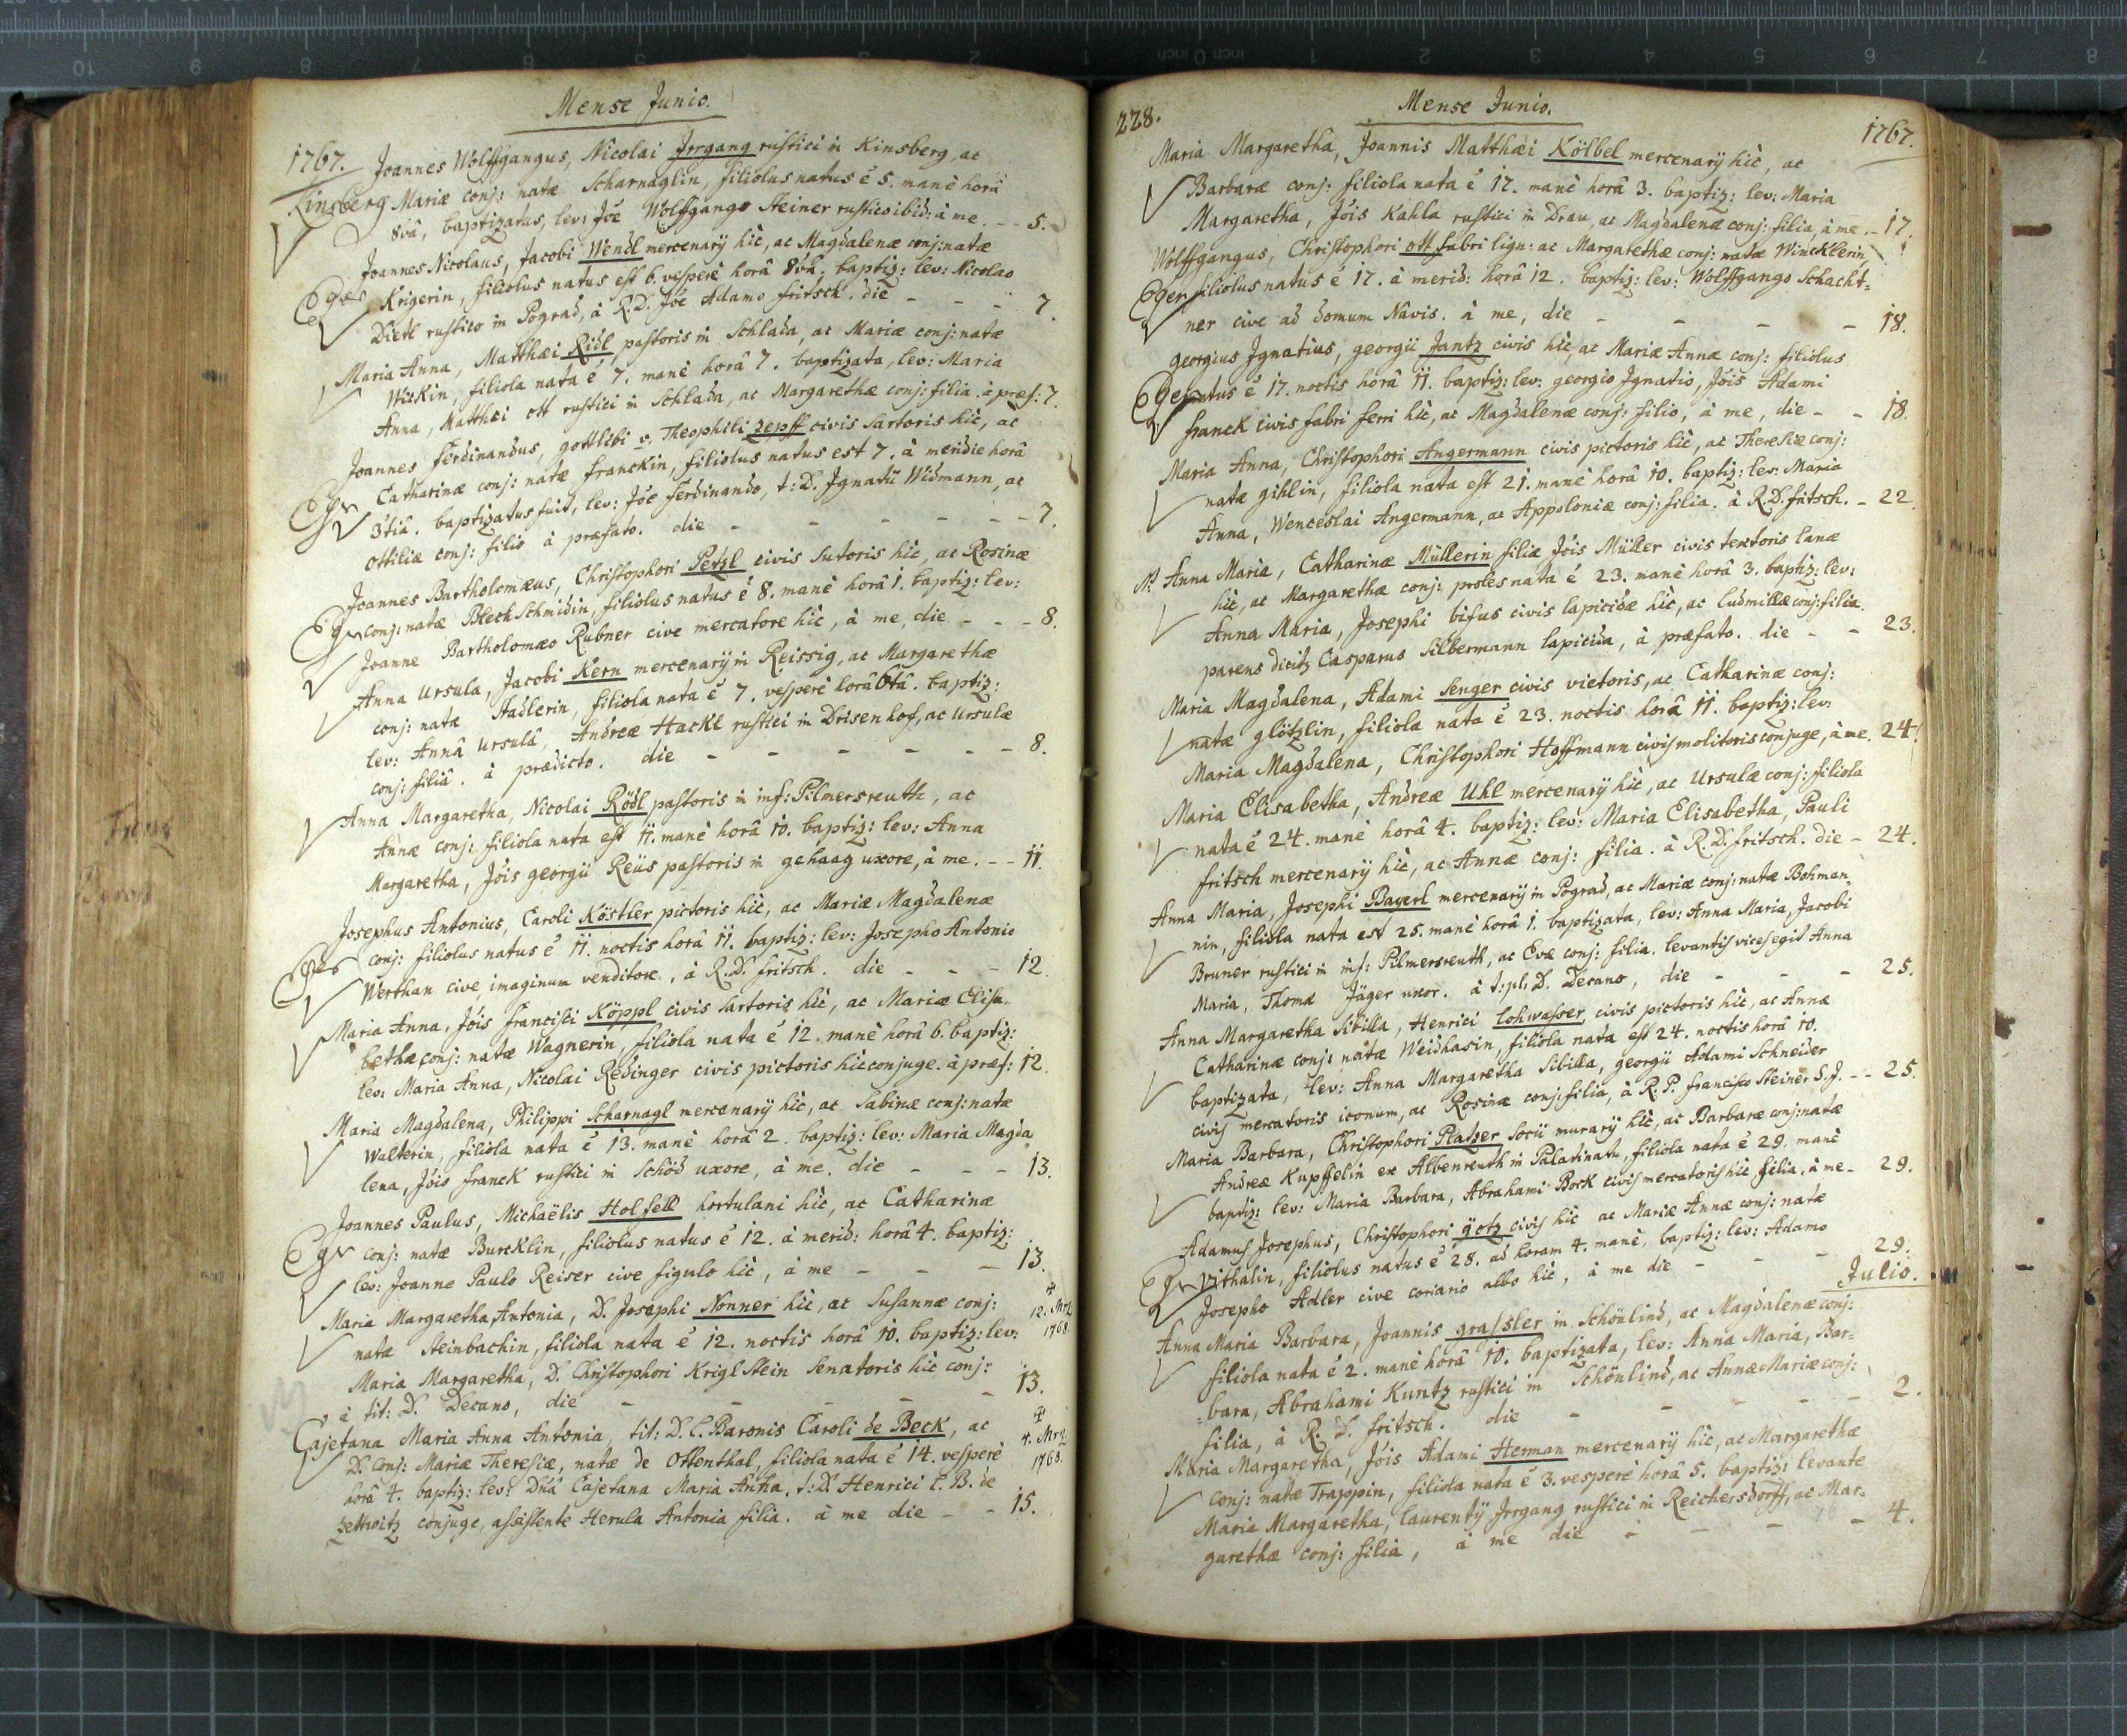 Mense Junio.
1767. Joannes Wolffgangus, Nicolai Jrrgang rustici in Kinsberg, ac
Kinsberg Mariæ conj: natæ Scharnaglin, filiolus natus é 5. manè horâ
8vâ, baptizatus, lev: Jóe Wolffgango Steiner rustico ibid: à me. - - 5.
Joannes Nicolaus, Jacobi Wendl mercenarÿ hìc, ac Magdalenæ conj: natæ
Eger Krigerin, filiolus natus est 6. vesperè horâ 8vâ. baptiz: lev: Nicolao
Dietl rustico in Pograd, à R.D. Jóe Adamo fritsch. die - - - 7.
Maria Anna, Matthæi Ridl pastoris in Schlada, ac Mariæ conj: natæ
Wickin, filiola nata é 7. manè horâ 7. baptizata, lev: Maria
Anna, Matthæi ott rustici in Schlada, ac Margarethæ conj: filia. à præf: 7.
Joannes ferdinandus, gottlibi v. Theophili zepff civis sartoris hìc, ac
Eger Catharinæ conj: natæ franckin, filiolus natus est 7. à meridie horâ
3tiâ. baptizatus fuit, lev: Jóe ferdinando, t: D. Jgnatii Widmann, ac
ottiliæ conj: filio à præfato. die - - - - - - 7.
Joannes Bartholomæus, Christophori Petzl civis sutoris hìc, ac Rosinæ
Eger conj: natæ Bleckschmidin, filiolus natus é 8. manè horâ 1. baptiz: lev:
Joanne Bartholomæo Rubner cive mercatore hìc, à me, die - - - 8.
Anna Ursula, Jacobi Kern mercenarÿ in Reissig, ac Margarethæ
conj: natæ Stadlerin, filiola nata é 7. vesperè horâ 6tâ. baptiz:
lev: Annâ Ursulâ, Andreæ Hackl rustici in Drisenhof, ac Ursulæ
conj: filiâ. à prædicto. die - - - - - - 8.
Anna Margaretha, Nicolai Rödl pastoris in inf: Pilmersreuth, ac
Annæ conj: filiola nata est 11. manè horâ 10. baptiz: lev: Anna
Margaretha, Jóis georgii Reüs pastoris in gehaag uxore, à me. - - 11.
Josephus Antonius, Caroli Köstler pictoris hìc, ac Mariæ Magdalenæ
Eger conj: filiolus natus é 11. noctis horâ 11. baptiz: lev: Josepho Antonio
Werthan cive imaginum venditore, à R.D. fritsch. die - - - 12.
Maria Anna, Jóis francisci Köppl civis sartoris hìc, ac Mariæ Elisa-
bethæ conj: natæ Wagnerin, filiola nata é 12. manè horâ 6. baptiz:
lev: Maria Anna, Nicolai Redinger civis pictoris hìc conjuge. à præf: 12.
Maria Magdalena, Philippi Scharnagl mercenarÿ hìc, ac Sabinæ conj: natæ
Walterin, filiola nata é 13. manè horâ 2. baptiz: lev: Maria Magda
lena, Jóis franck rustici in Schöd uxore, à me. die - - - 13.
Joannes Paulus, Michaëlis Holfell hortulani hìc, ac Catharinæ
Eger conj: natæ Burcklin, filiolus natus é 12. à merid: horâ 4. baptiz:
lev: Joanne Paulo Reiser cive figulo hìc, à me - - - 13.
Maria Margaretha Antonia, D. Josephi Nonner hìc, ac Susannæ conj:
natæ Steinbachin, filiola nata é 12. noctis horâ 10. baptiz: lev:
12. Mrz 1768.
Maria Margaretha, D. Christophori Kriglstein Senatoris hìc conj:
à tit: D. Decano, die - - - - - 13.
Cajetana Maria Anna Antonia, tit: D. L. Baronis Caroli de Beck, ac
D. conj: Mariæ Theresiæ, natæ de Ottenthal, filiola nata é 14. vesperè
4. Mrz 1768.
horâ 4. baptiz: lev: Dnâ Cajetana Maria Anna, t: D. Henrici L. B. de
zettwitz conjuge, assistente Herula Antonia filia. à me die - - 15.
228. Mense Junio. 1767.
Maria Margaretha, Joannis Matthæi Kölbel mercenarÿ hìc, ac
Barbaræ conj: filiola nata é 17. manè horâ 3. baptiz: lev: Maria
Margaretha, Jóis Kahla rustici in Drau, ac Magdalenæ conj: filia, à me. - 17.
Wolffgangus, Christophori ott fabri lign: ac Margarethæ conj: natæ Wincklerin,
Eger filiolus natus é 17. à merid: horâ 12. baptiz: lev: Wolffgango Schacht=
ner cive ad domum Navis. à me, die - - - - 18.
georgius Jgnatius, georgii Jantz civis hìc, ac Mariæ Annæ conj: filiolus
Eger natus é 17. noctis horâ 11. baptiz: lev: georgio Jgnatio, Jóis Adami
franck civis fabri ferri hìc, ac Magdalenæ conj: filio, à me, die - - 18.
Maria Anna, Christophori Angermann civis pictoris hìc, ac Theresiæ conj:
natæ gihlin, filiola nata est 21. manè horâ 10. baptiz: lev: Maria
Anna, Wenceslai Angermann, ac Appoloniæ conj: filia. à R.D. fritsch. - 22.
N. Anna Maria, Catharinæ Müllerin filiæ Jóis Müller civis textoris lanæ
hìc, ac Margarethæ conj: proles nata é 23. manè horâ 3. baptiz: lev:
Anna Maria, Josephi bifus civis lapicidæ hìc, ac ludmillæ conj: filia.
parens dicitz Casparus Silbermann lapicida, à præfato. die - - 23.
Maria Magdalena, Adami Senger civis victoris, ac Catharinæ conj:
natæ glötzlin, filiola nata é 23. noctis horâ 11. baptiz: lev:
Maria Magdalena, Christophori Hoffmann civis molitoris conjuge, à me. 24.
Maria Elisabetha, Andreæ Uhl mercenarÿ hìc, ac Ursulæ conj: filiola
nata é 24. manè horâ 4. baptiz: lev: Maria Elisabetha, Pauli
fritsch mercenarÿ hìc, ac Annæ conj: filia. à R.D. fritsch. die - 24.
Anna Maria, Josephi Bayerl mercenarÿ in Pograd, ac Mariæ conj: natæ Bohman=
nin, filiola nata est 25. manè horâ 1. baptizata, lev: Anna Maria, Jacobi
Bruner rustici in inf: Pilmersreuth, ac Evæ conj: filia. levantis vices egit Anna
Maria, Thomæ Jäger uxor. à t: pl: D. Decano, die - - - 25.
Anna Margaretha Sibilla, Henrici Lohwasser civis pictoris hìc, ac Annæ
Catharinæ conj: natæ Weidhasin, filiola nata est 24. noctis horâ 10.
baptizata, lev: Anna Margaretha Sibilla, georgii Adami Schneider
civis mercatoris iconum, ac Rosinæ conj: filia, à R. P. francisco Steiner S. J. - - 25.
Maria Barbara, Christophori Platzer socii murarÿ hìc, ac Barbaræ conj: natæ
Andreæ Kupffelin ex Albenreuth in Palatinatu, filiola nata é 29. manè
baptiz: lev: Maria Barbara, Abrahami Bock civis mercatoris hìc filia, à me - 29.
Adamus Josephus, Christophori götz civis hìc ac Mariæ Annæ conj: natæ
Eger Vithalin, filiolus natus é 28. ad horam 4. manè, baptiz: lev: Adamo
Josepho Adler cive coriario albo hìc, à me die - - - 29.
Julio.
Anna Maria Barbara, Joannis grassler in Schönlind, ac Magdalenæ conj:
filiola nata é 2. manè horâ 10. baptizata, lev: Anna Maria, Bar=
=bara, Abrahami Kuntz rustici in Schönlind, ac Annæ Mariæ conj:
filia, à R. D. fritsch. die - - - - - 2.
Maria Margaretha, Jóis Adami Herman mercenarÿ hìc, ac Margarethæ
conj: natæ Trappin, filiola nata é 3. vesperè horâ 5. baptiz: levante
Maria Margaretha, laurentÿ Jrrgang rustici in Reichersdorff, ac Mar=
garethæ conj: filia, à me die - - - - 4.